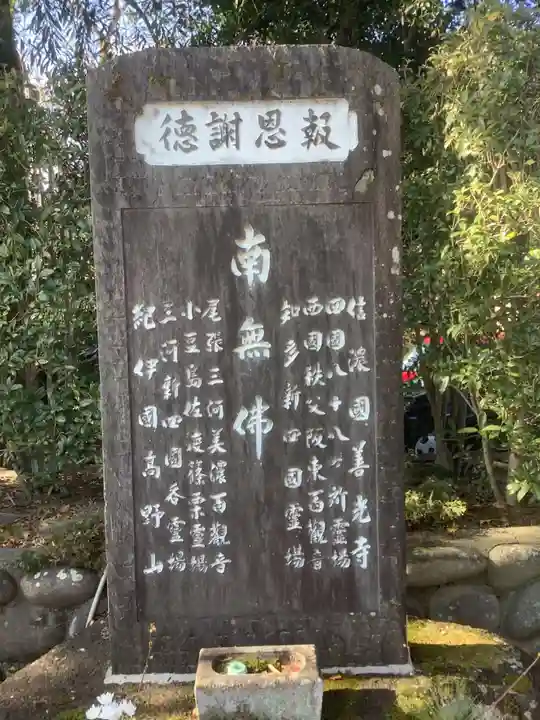 報恩謝徳
信濃國善光寺
四國八十八ヶ所霊場
西國秩父阪東百観音
知多新四国霊場
南無佛
尾張三河美濃百観音
小豆島佐渡篠栗霊場
三河新四國各霊場
紀伊國高野山